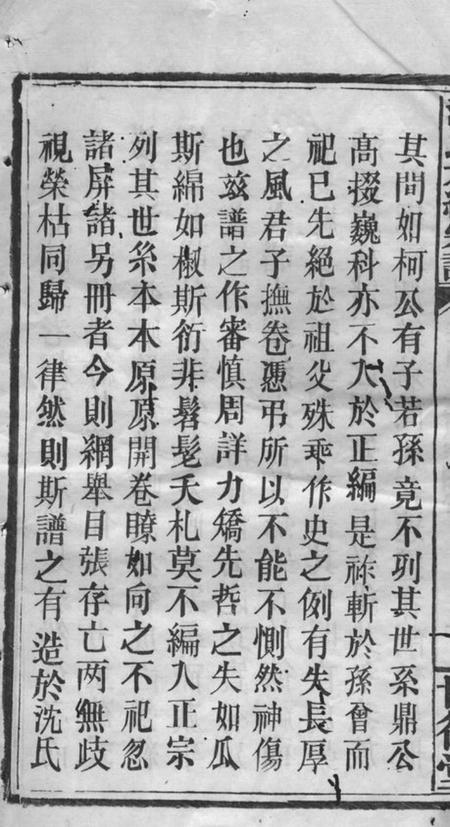 其間如柯公有子若孫竟不列其世系鼎公
高掇巍科亦不入於正編是祢斬於孫曾而
祀已先絕於祖父殊乖作史之例有失長厚
之風君子撫卷憑弔所以不能不惻然神傷
也玆譜之作審慎周詳力矯先哲之失如瓜
斯綿如椒斯衍非髫髦夭札莫不編入正宗
列其世系本本原原開卷瞭如向之不祀忽
諸屏諸另冊者今則網舉目張存亡两無歧
視榮枯同歸一律然則斯譜之有造於沈氏